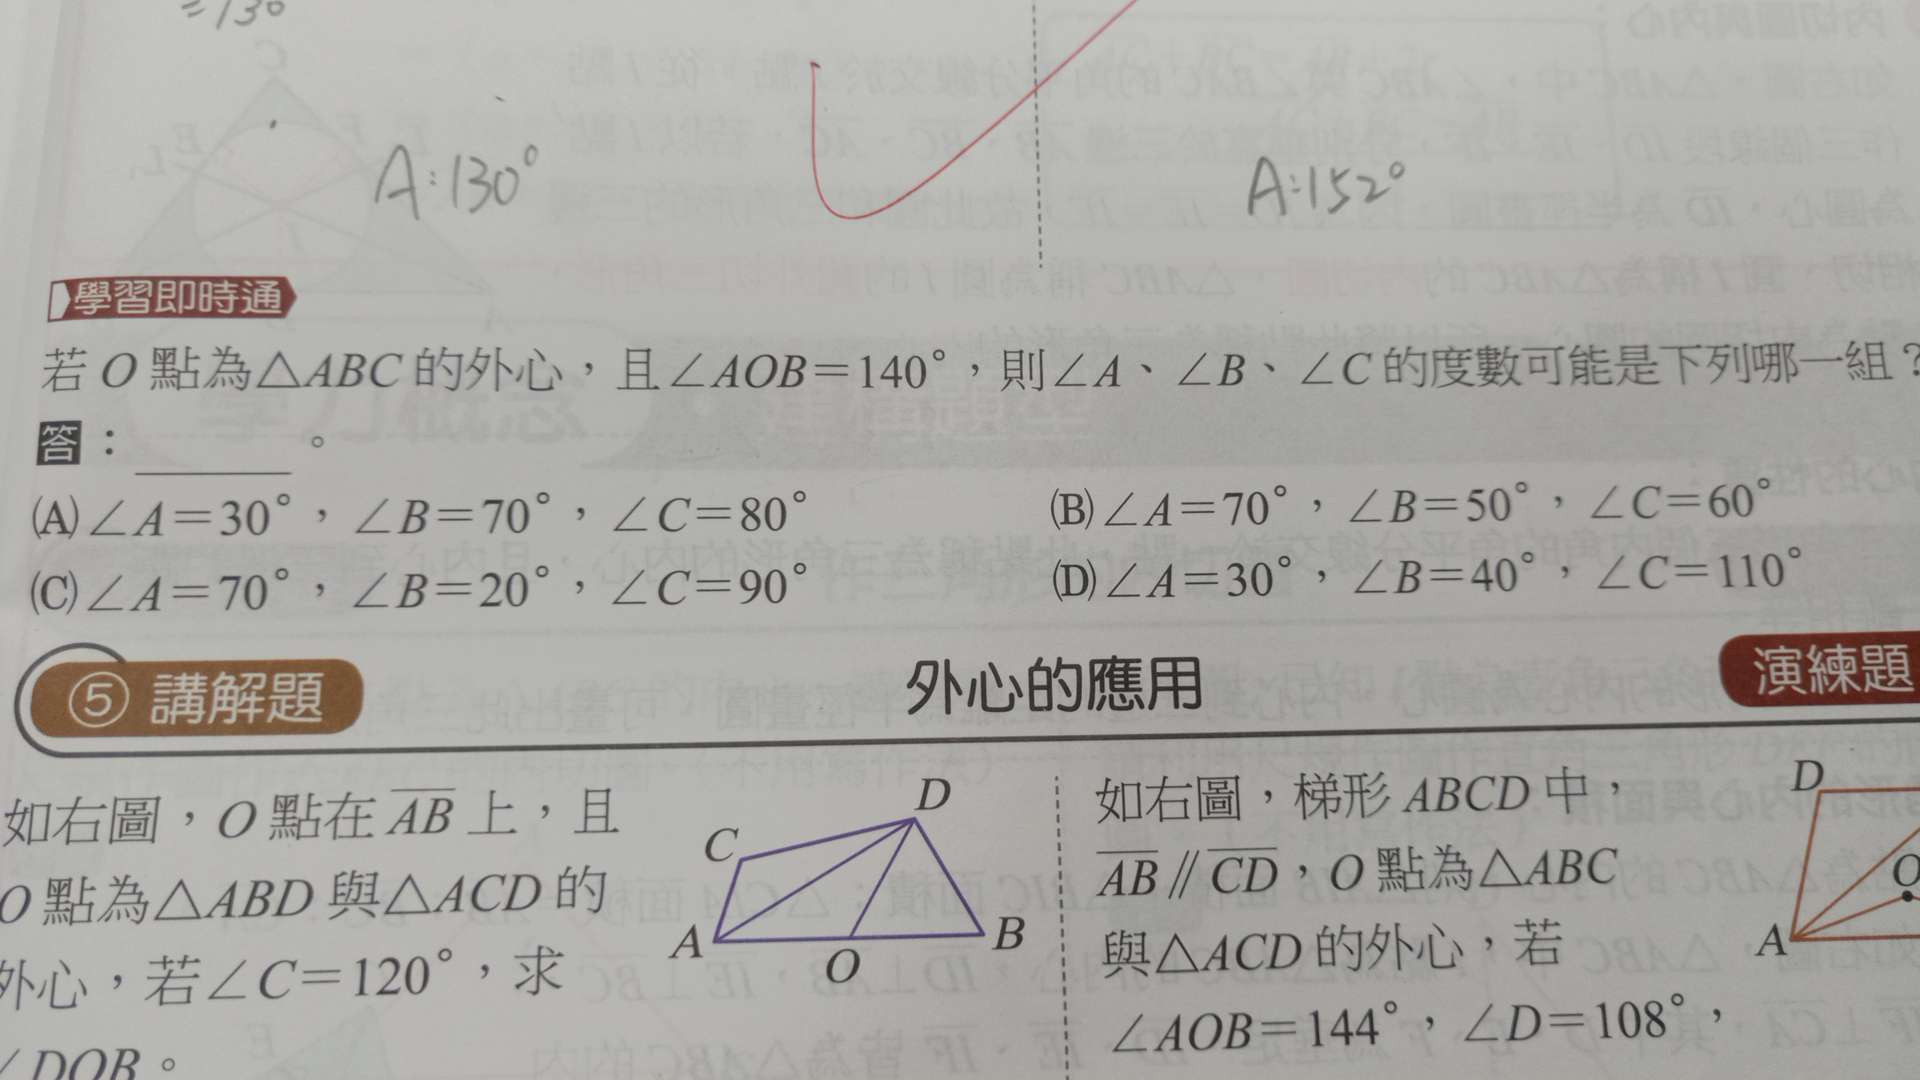 =130
A:130°
A:152°
學習即時通
若 O 點為△ABC 的外心，且∠AOB=140°，則∠A、∠B、∠C 的度數可能是下列哪一組？
答：________。
(A)∠A=30°，∠B=70°，∠C=80°
(B)∠A=70°，∠B=50°，∠C=60°
(C)∠A=70°，∠B=20°，∠C=90°
(D)∠A=30°，∠B=40°，∠C=110°
⑤ 講解題
外心的應用
演練題
如右圖，O 點在 AB 上，且
O 點為△ABD 與△ACD 的
外心，若∠C=120°，求
∠DOB。
C
D
A
O
B
如右圖，梯形 ABCD 中，
AB∥CD，O 點為△ABC
與△ACD 的外心，若
∠AOB=144°，∠D=108°，
D
O
A